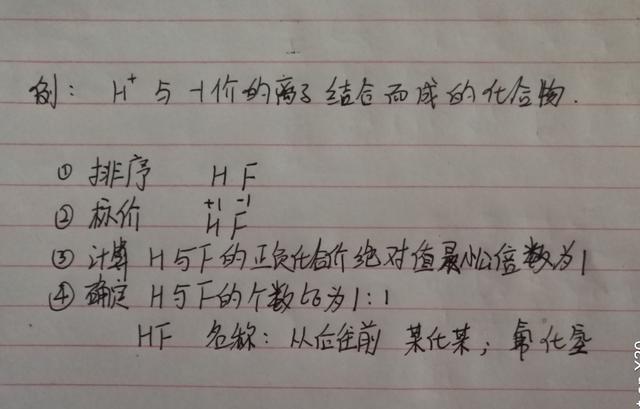 例: H⁺ 与 -1价的离子结合而成的化合物.
① 排序 H F
+1 -1
② 标价 H F
③ 计算 H与F的正负化合价绝对值最小公倍数为1
④ 确定 H与F的个数比为1:1
HF 名称: 从后往前 某化某; 氟化氢